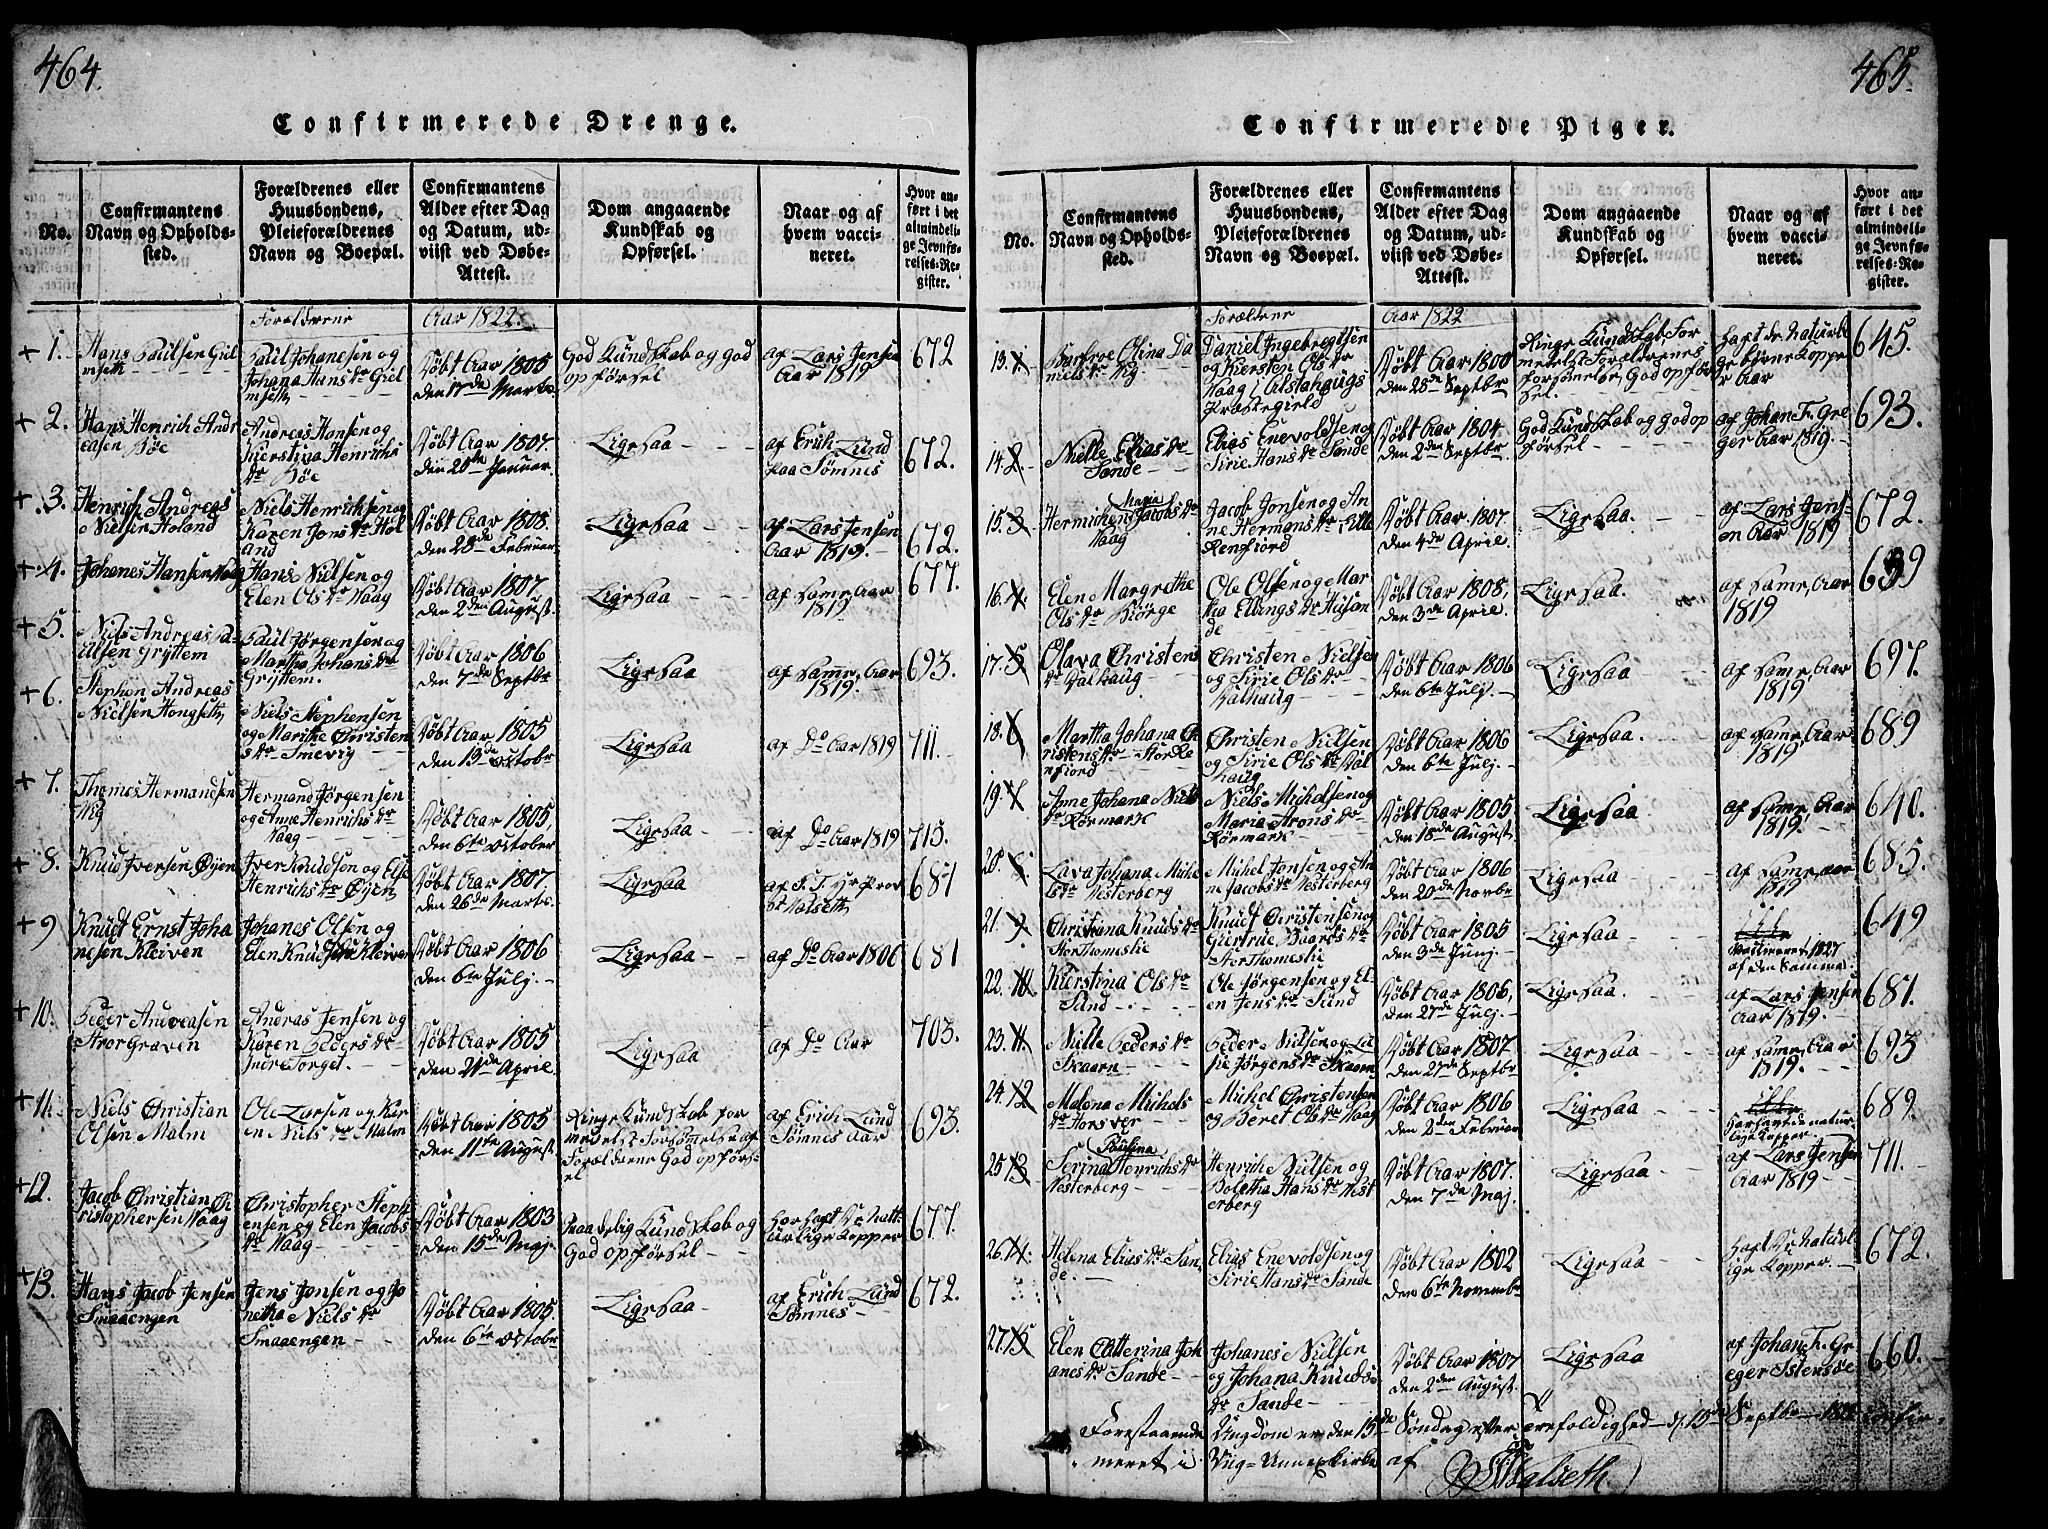 464.
Confirmerede Drenge.
No.
Confirmantens
Navn og Opholds-
sted.
Forældrenes eller
Huusbondens,
Pleieforældrenes
Navn og Boepæl.
Confirmantens
Alder efter Dag
og Datum, ud-
viist ved Døbe-
Attest.
Dom angaaende
Kundskab og
Opførsel.
Naar og af
hvem vacci-
neret.
Hvor an-
ført i det
almindeli-
ge Jevnfø-
relses-Re-
gister.
Forælderene
Aar 1822.
+ 1.
Hans Paulsen Giel
msett
Paul Johanesen og
Johana Hans dr Giel
msett
Døbt Aar 1805
den 17de Marts.
God Kundskab og god
opførsel
af Lars Jensen
Aar 1819
672
+ 2.
Hans Henrich Andr
easen Bøe
Andreas Hansen og
Kierstina Henrichs
dr Bøe
Døbt Aar 1807.
den 20de Januar
Ligesaa
af Erich Lund
paa Sømnes
672.
+ 3.
Henrich Andreas
Nielsen Holand
Niels Henrichsen og
Karen Jons dr Hol
and
Døbt Aar 1808.
den 28de Februar
Ligesaa
af Lars Jensen
Aar 1819.
672.
+ 4.
Johanes Hansen Haag
Hans Nielsen og
Elen Ols dr Haag
Døbt Aar 1807
den 2den August
Ligesaa
af Same, Aar
1819
677.
+ 5.
Niels Andreas Pa-
ulsen Gryttem
Paul Jørgensen og
Martha Johans dr
Gryttem.
Døbt Aar 1806
den 7de Septbr
Ligesaa
af Same, Aar
1819.
693.
+ 6.
Stephen Andreas
Nielsen Hongsett
Niels Stephensen
og Marithe Christen
s dr Smevig
Døbt Aar 1805
den 13de Octobr
Ligesaa
af Do Aar 1819
711.
+ 7.
Thomes Hermandsen
Wig
Hermand Jørgensen
og Anne Henrichs dr
Haag
Døbt Aar 1805,
den 6te October
Ligesaa
af Do Aar 1819
715.
+ 8.
Knud Iversen Øyen
Iver Knudson og Else
Henrichs dr Øyen
Døbt Aar 1807.
den 26de Marts.
Ligesaa
681
+ 9
Knudt Ernst Joha
nesen Kleiven
Johanes Olsen og
Elen Knuds dr Kleiven
Døbt Aar 1806
den 6te Julj.
Ligesaa
af Do Aar 1806
681
+ 10.
Peder Andreasen
Storgraven
Andras Jensen og
Karen Peders dr
Indre Torget.
Døbt Aar 1805
den 21de April
Ligesaa
af Do Aar
703.
+ 11.
Niels Christian
Olsen Malm
Ole Larsen og Kar
en Niels dr Malm
Døbt Aar 1805
den 11te August
Ringe Kundskab for
medelst Forsømelse af
Forælderene God opførs-
el
af Erich Lund
Sømnes Aar
693.
+ 12.
Jacob Christian Ch
ristophersen Haag
Christopher Steph
ensen og Elen Jacobs
dr Haag
Døbt Aar 1803
den 15de Maj.
Maadelig Kundskab og
God opførsel
har haft de natt-
urlige Kopper
677.
+ 13.
Hans Jacob Jensen
Smaaengen
Jens Jonsen og Jo
netha Niels dr
Smaaengen
Døbt Aar 1805.
den 6te Octobr
Ligesaa
af Erich Lund
Sømnes
672.
465.
Confirmerede Piger.
No.
Confirmantens
Navn og Opholds-
sted.
Forældrenes eller
Huusbondens,
Pleieforældrenes
Navn og Boepæl.
Confirmantens
Alder efter Dag
og Datum, ud-
viist ved Døbe-
Attest.
Dom angaaende
Kundskab og
Opførsel.
Naar og af
hvem vacci-
neret.
Hvor an-
ført i det
almindeli-
ge Jevnfø-
relses-Re-
gister.
Forældrene
Aar 1822
13. 1.
Barbroe Olina Da
niels dr Wig
Daniel Ingebregtsen
og Kiersten Ols dr
Haag i Alstahougs
Præstegield
Døbt Aar 1800
den 28de Septbr
Ringe Kundskab For
medelst Forælderenes
forsømelse, God opfør
sel.
haft de Naturli
ge børne Kopper
645.
14. 2.
Nille Elias dr
Sande
Elias Enevoldsen og
Sirie Hans dr Sande
Døbt Aar 1804
den 2den Septbr
God Kundskab og god op
førsel
af Johan F. Gre
ger Aar 1819.
693.
15. 3
Maria
Hermichen Jacobs dr
Haag
Jacob Jonsen og An
ne Hermans dr Elle
Renfiord
Døbt Aar 1807.
den 4de April.
Ligesaa.
af Lars Jens-
en Aar 1819
672.
16. 4
Elen Margrethe
Ols dr Børge
Ole Olsen og Mar
tha Ellings dr
Døbt Aar 1808,
den 3de April.
Ligesaa.
af Same, Aar
1819
699
17. 5
Olava Christens
dr Valhaug
Christen Nielsen
og Sirie Ols dr
Valhaug
Døbt Aar 1806
den 6te Julj.
Ligesaa
af Same, Aar
1819
697.
18. 6
Martha Johana Ch
ristens dr
Christen Nielsen
og Sirie Ols dr Val
haug
Døbt Aar 1806
den 6te Julj.
Ligesaa.
af Same, Aar
1819
689
19. 7
Anne Johana Niels
dr Rørmark
Niels Michelsen og
Maria Arons dr
Rørmark
Døbt Aar 1805
den 18de August
Ligesaa
af Same, Aar
1819.
640.
20. 8
Lava Johana Mich
els dr Vesterberg
Michel Jonsen og An
ne Jacobs dr Vesterberg
Døbt Aar 1806
den 20de Novbr
Ligesaa
af Same, Aar
1819
685.
21. 9
Christiana Knuds dr
Stor Thomeslie
Knudt Christensen og
Giertrue Baards dr
Stor Thomeslie
Døbt Aar 1805
den 3de Junj.
Ligesaa.
ikke
Vaccineret 1827
af den Samme.
649
22. 10
Kierstina Ols dr
Sund
Ole Jørgensen og El-
en Jens dr Sund
Døbt Aar 1806,
den 27de Julj.
Ligesaa.
af Lars Jensen
Aar 1819.
681.
23. 11.
Nille Peders dr
Skaarn
Peder Nielsen og
Jørgens dr Skaarn
Døbt Aar 1807
den 27de Septbr
Ligesaa
af Same, Aar
1819.
693
24. 12
Malena Michels
dr Horsver
Michel Christensen
og Beret Ols dr Haag
Døbt Aar 1806
den 2den Februar
Ligesaa
ikke
har havt de natur
lige Kopper.
689.
25 13
Paulina
Serina Henrichs dr
Vesterberg
Henrich Nielsen og
Boletha Hans dr Vest
erberg
Døbt Aar 1807.
den 7de Maj.
Ligesaa
af Lars Jensen
Aar 1819
711.
26. 14.
Helena Elias dr San
de.
Elias Enevoldsen og
Sirie Hans dr Sande
Døbt Aar 1802
den 6te Novembr
Ligesaa
haft de Naturl
ige Kopper.
672.
27. 15
Elen Catterina Joh
anes dr Sande
Johanes Nielsen
og Johana Knuds
dr Sande
Døbt Aar 1807
den 2den August.
Ligesaa
af Johan F. Gr
eger
660.
Forestaaende Ungdom er den 15de Søndag efter Trefoldighed d. 15de Septbr 1822 Confir-
meret i Viig Annex Kirke af
Walseth